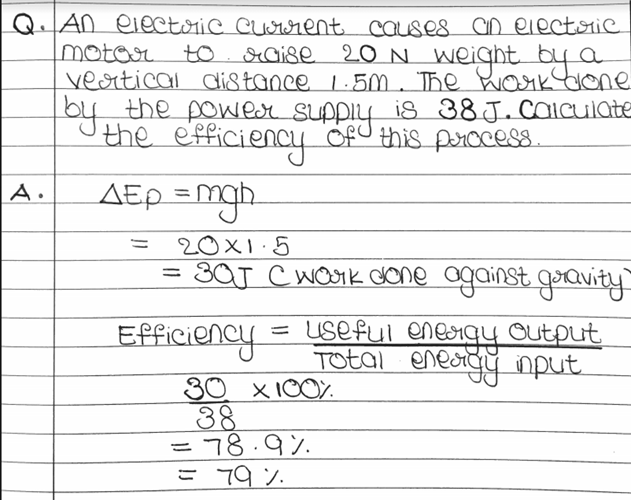 Q. An electric current causes an electric
motor to raise 20 N weight by a
vertical distance 1.5m. The work done
by the power supply is 38 J. Calculate
the efficiency of this process.
A. ΔEp = mgh
= 20 × 1.5
= 30J (work done against gravity)
Efficiency = useful energy output
Total energy input
30 × 100%
38
= 78.9%.
= 79%.